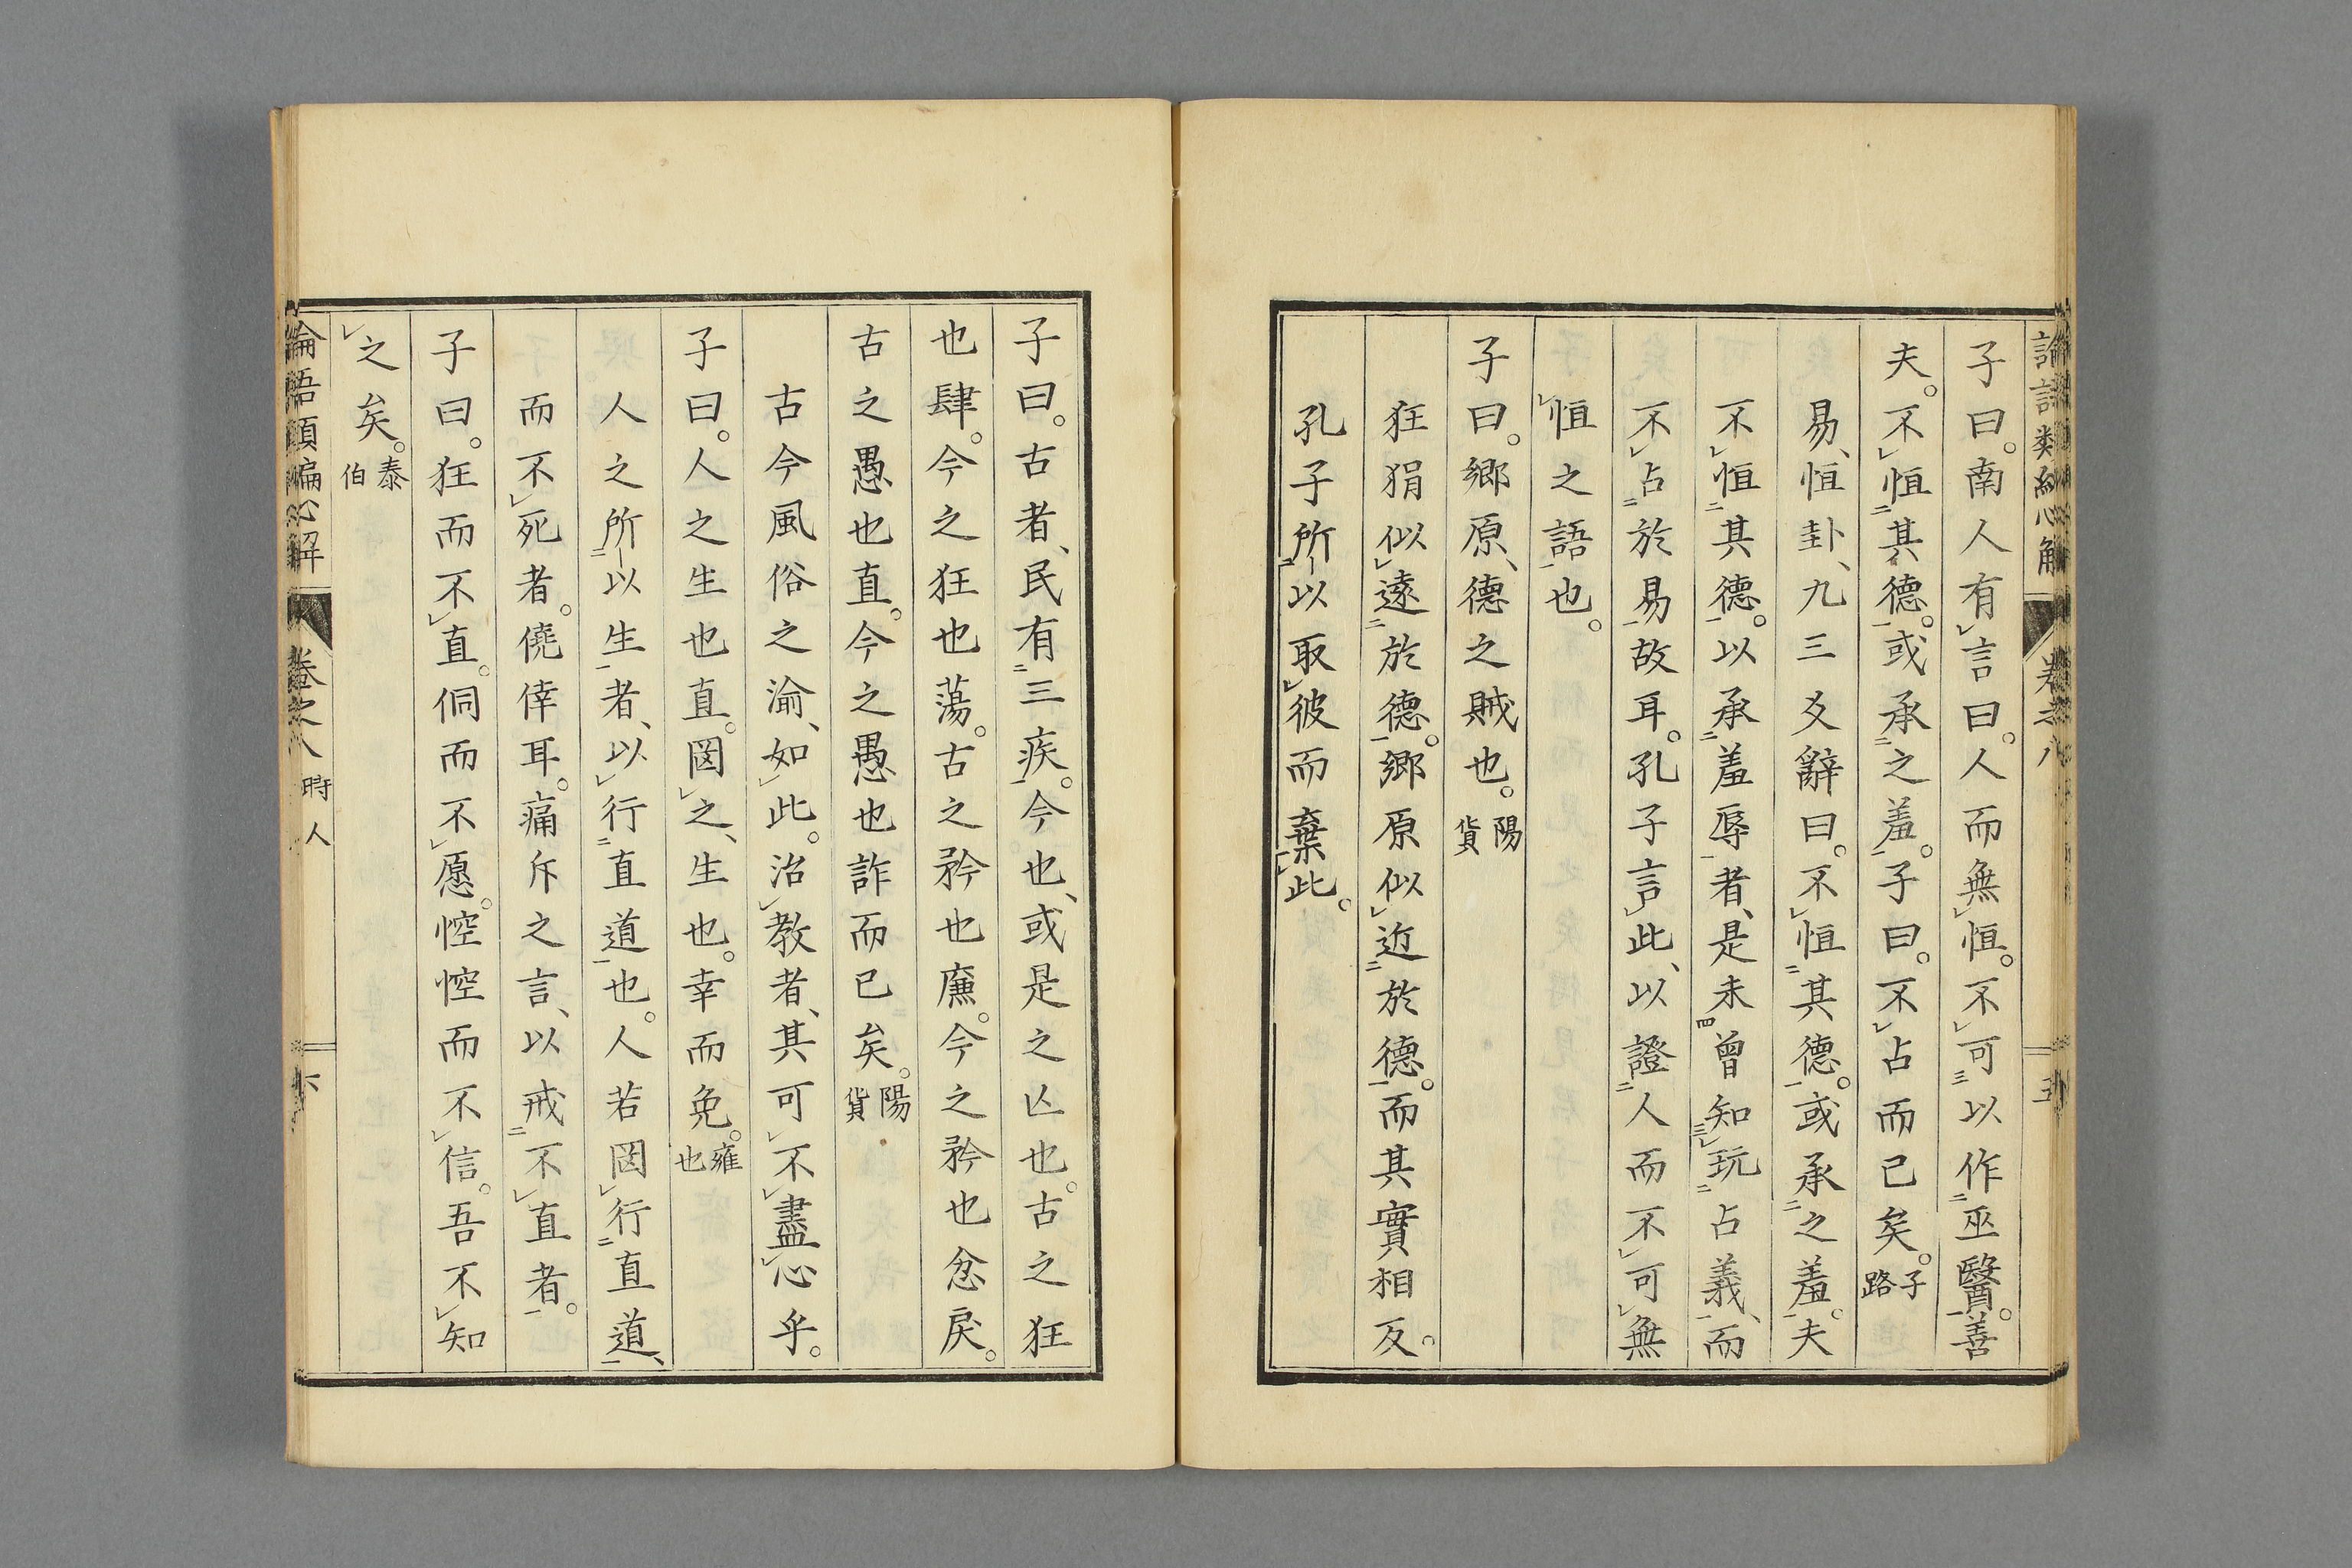 論語類編心解 卷之八 五
子曰。南人有言曰。人而無恒。不可以作巫醫。善
夫。不恒其德。或承之羞。子曰。不占而已矣。子路
易、恒卦、九三爻辭曰。不恒其德。或承之羞。夫
不恒其德。以承羞辱者、是未曾知玩占義、而
不占於易故耳。孔子言此、以證人而不可無
恒之語也。
子曰。鄉原、德之賊也。陽貨
狂狷似遠於德。鄉原似近於德。而其實相反。
孔子所以取彼而棄此。
子曰。古者、民有三疾。今也、或是之亾也。古之狂
也肆。今之狂也蕩。古之矜也廉。今之矜也忿戾。
古之愚也直。今之愚也詐而已矣。陽貨
古今風俗之渝、如此。治教者、其可不盡心乎。
子曰。人之生也直。罔之、生也。幸而免。雍也
人之所以生者、以行直道也。人若罔行直道、
而不死者。僥倖耳。痛斥之言、以戒不直者。
子曰。狂而不直。侗而不愿。悾悾而不信。吾不知
之矣。泰伯
論語類編心解 卷之八 時人 下